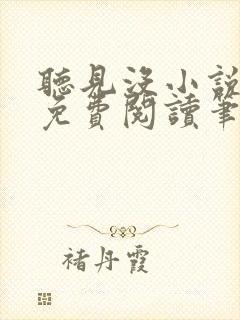 聽見沒小說
免費閱讀筆
褚丹霞